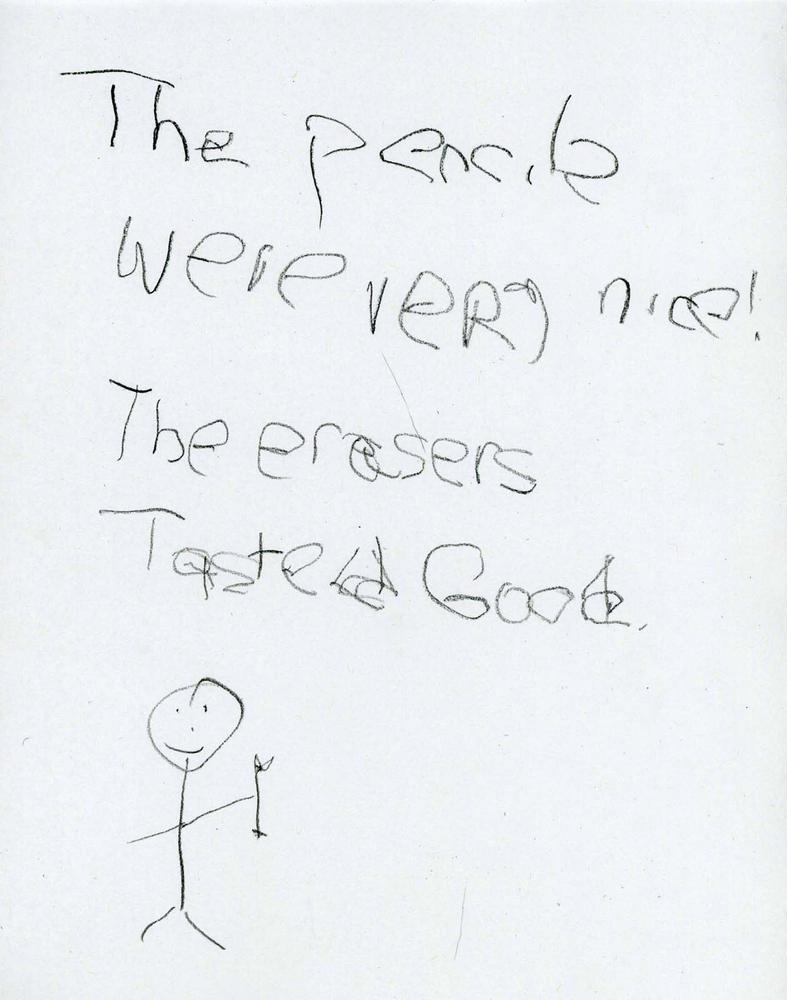 The pencils
were very nice!
The erasers
Tasted Good.